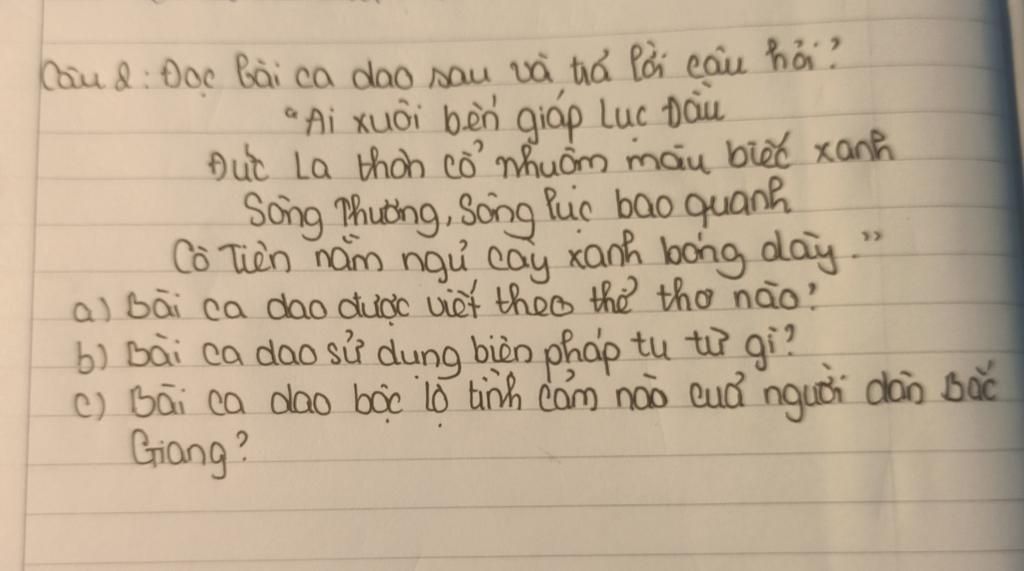 Câu 2: Đọc bài ca dao sau và trả lời câu hỏi?
"Ai xuôi bến giáp Lục Đầu
Đức La thôn cổ nhuốm màu biếc xanh
Sông Thương, Sông lục bao quanh
Cô Tiên nằm ngủ cây xanh bóng dày."
a) Bài ca dao được viết theo thể thơ nào?
b) Bài ca dao sử dụng biện pháp tu từ gì?
c) Bài ca dao bộc lộ tình cảm nào của người dân Bắc
Giang?